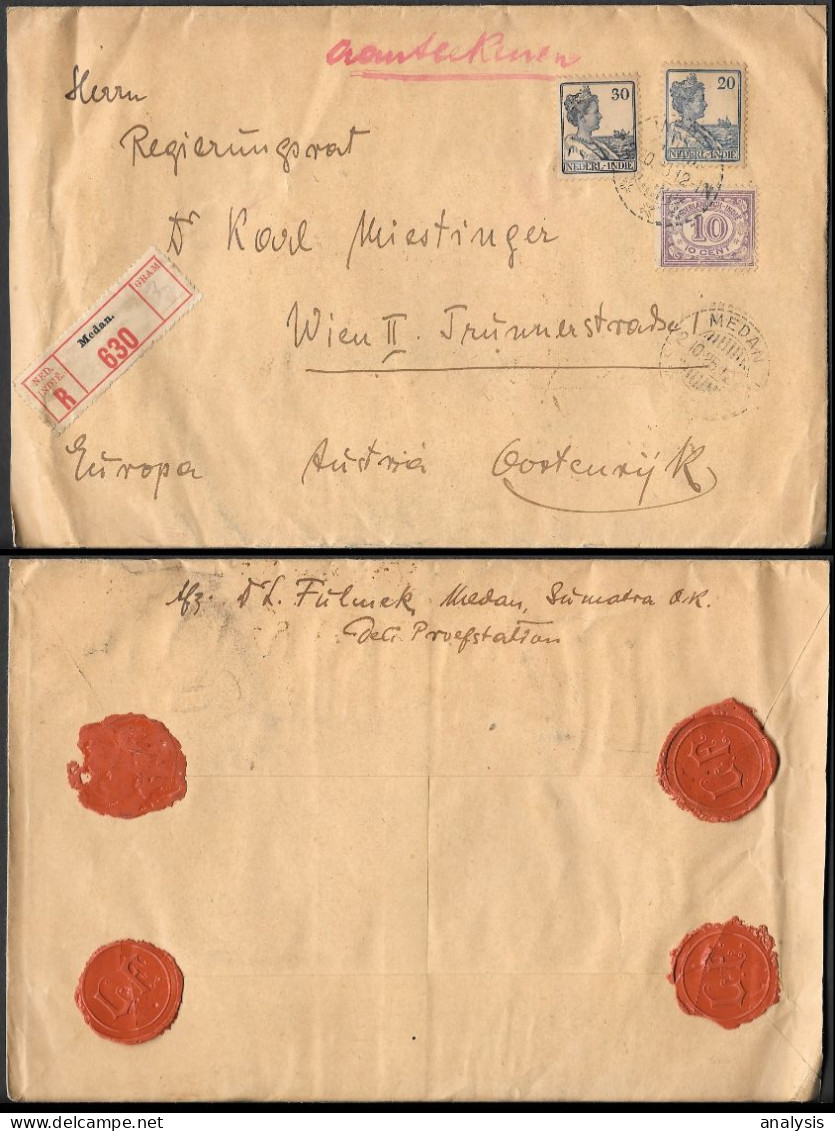 Aanteekenen
Herrn
Regierungsrat
Dr Karl Miestinger
Wien II. Trunnerstraße 1
Europa Austria Oostenrijk
30
NEDERL.-INDIE
20
NEDERL.-INDIE
10
10 CENT
MEDAN
NED. INDIË.
R
Medan.
630
GRAM
Afz. Dr L. Fulmek, Medan, Sumatra O.K.
Deli Proefstation
L.F.
L.F.
L.F.
analysis